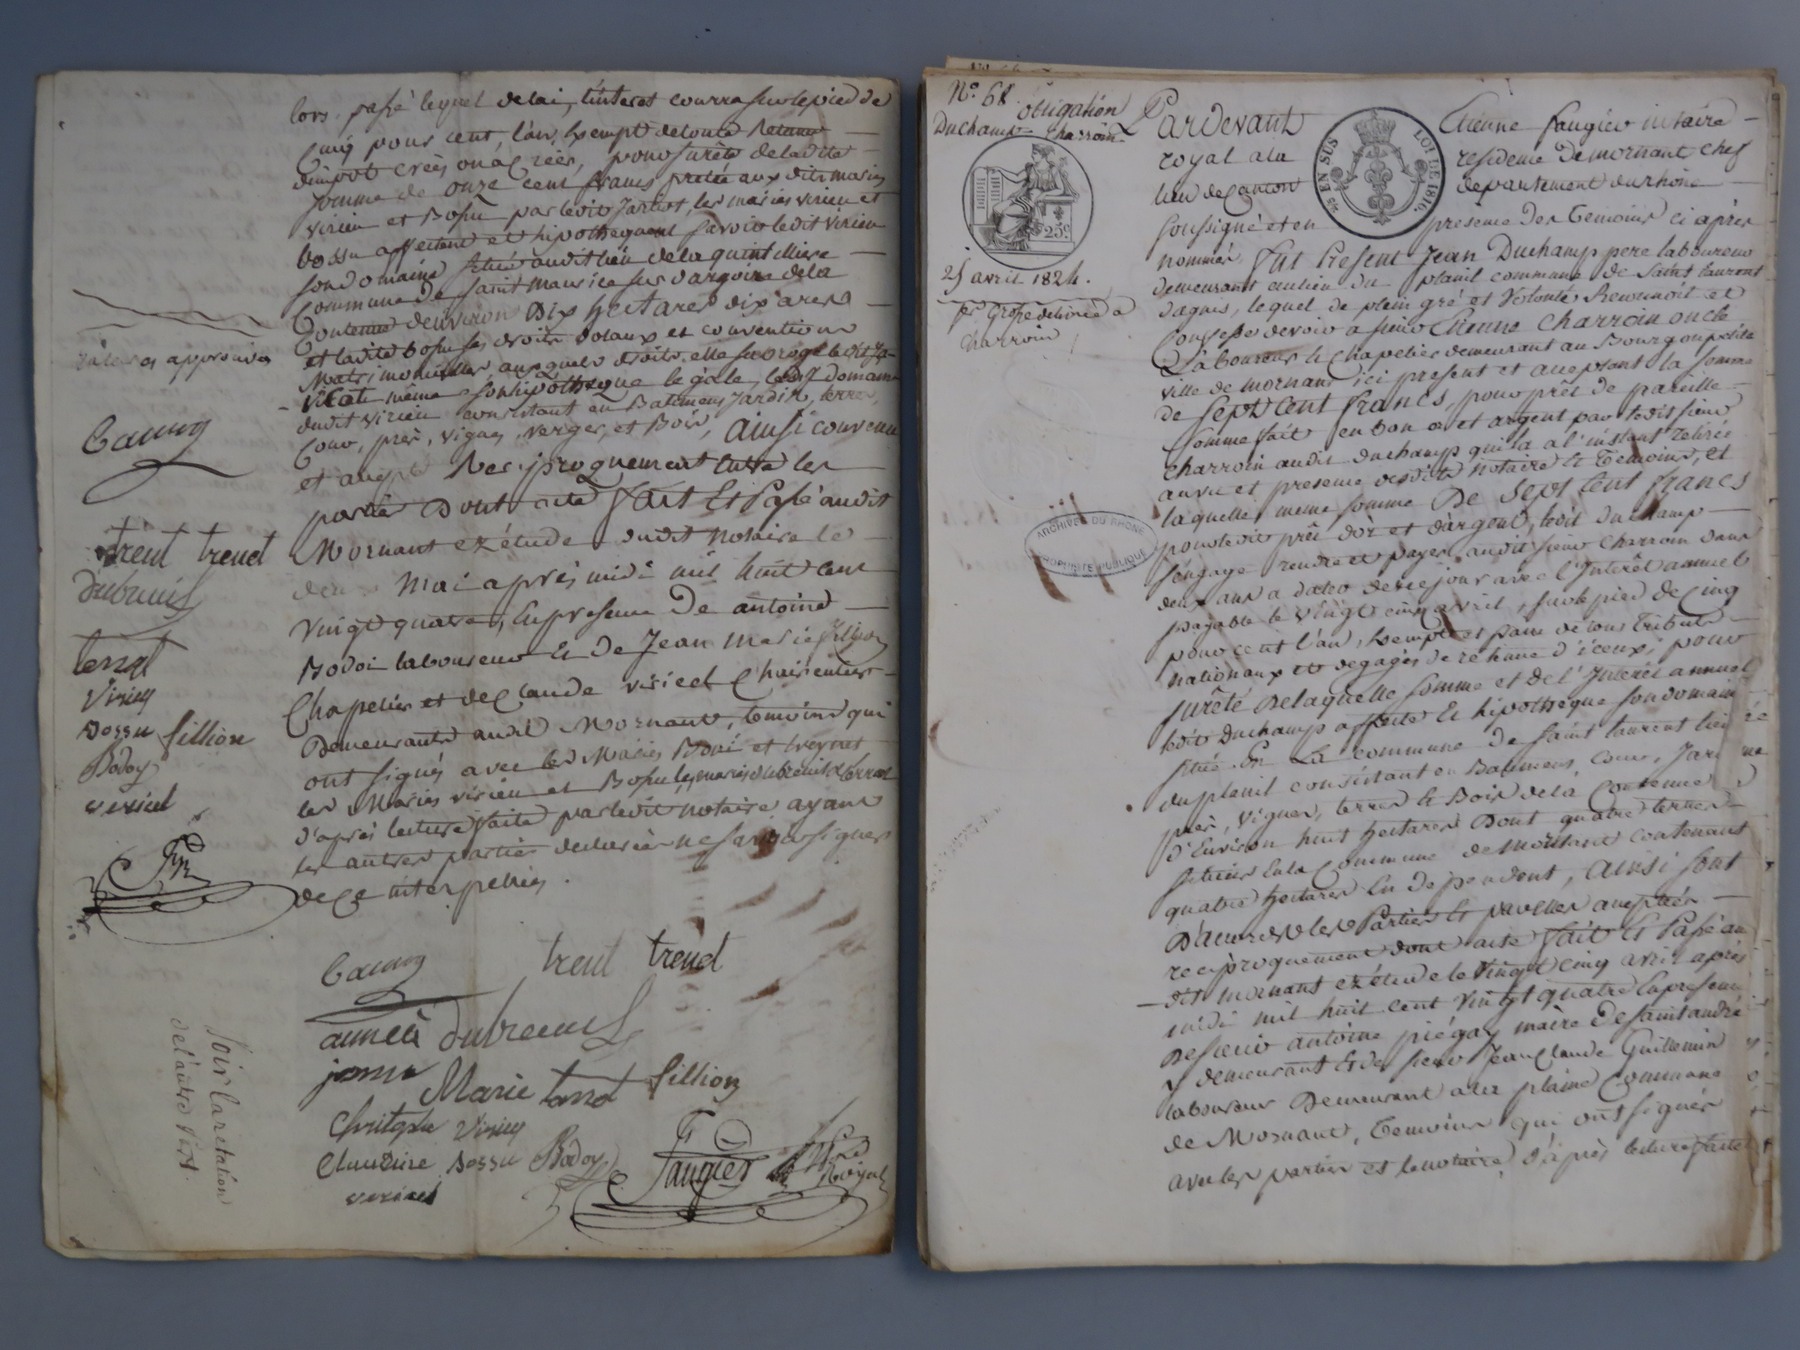 lors passé lequel delai, l'intérêt courra sur le pied de
Cinq pour cent, l'an, Exempt de toute Retenue
d'impot créés ou a Créér, pour sureté de la dite
somme de onze cent francs pretée aux dits mariés
virieu et Bossu par ledit Jartot, les mariés virieu et
bossu affectent et hipothequent savoir ledit virieu
son domaine situé audit lieu de la quintilliere
Commune de Saint Maurice sur dargoire de la
Contenue d'environ Dix hectares dix ares
et ladite bossu ses droits dotaux et conventions
Matrimonialles, auxquels droits, elle subroge ledit
même son hipothèque légale, ledit domaine
dudit virieu consistant en Batimens Jardin, terres,
Cour, près, vignes, verger, et Bois, Ainsi convenu
et accepté Reciproquement entre les
parties Dont acte fait Et Passé audit
Mornant en étude dudit notaire le
deux Mai après midi mil huit cent
vingt quatre, En presence De antoine
Bodoi laboureur Et De Jean Marie fillion
Chapelier et de Claude viricel Chaircutier
Demeurants audit Mornant, temoins qui
ont signés avec les Mariés
les Mariés virieu et Bossu, les mariés dubreuil et terrat
d'après lecture faite par ledit notaire ayant
les autres parties declarées ne savoir signer
de Ce interpellées.
ratures approuvées
treul treud
dubreuil
terrat
Viricu
Bossu fillion
Bodoy
vericel
treul treud
dubreuil
Marie terrat fillion
Christophe Viricu
Claudine Bossu Bodoy Faugier Nre Royal
vericel
Voir la relation
de l'autre Part.
No. 68. obligation
Duchamp charroin
25c
25 avril 1824.
pr Grosse delivrée a
charroin
EN SUS
LOI DE 1816.
ARCHIVES DU RHÔNE
PROPRIÉTÉ PUBLIQUE
Pardevant Etienne faugier notaire
royal a la residence De mornant chef
lieu de Canton departement du rhône
soussigné et en presence des Temoins ci après
nommés Fut Present Jean Duchamp pere laboureur
demeurant au lieu du planil commune de Saint laurent
dagnis, lequel de plein gré et Volonté Reconnoit et
Confesse devoir a sieur Etienne Charroin oncle
Laboureur Et Chapelier demeurant au Bourg ou petite
ville de mornant ici present et acceptant la somme
de Sept Cent francs, pour prêt de pareille
somme fait en bon or et argent par ledit sieur
charroin audit duchamp qui la a l'instant retirée
au vu et presence desdits Notaire Et Temoins, Et
laquelle meme somme De Sept Cent francs
pour ledit prêt d'or et d'argent, ledit Duchamp
s'engage rendre et payer audit sieur Charroin dans
deux ans a dater de ce jour avec l'Interêt annuel
payable le vingt cinq avril, sur le pied de Cinq
pour cent l'an, Exempt et franc de tous Tributs
nationaux et degagés de retenue d'iceux; pour
sureté De laquelle somme et de l'Interêt annuel
ledit Duchamp affecte Et hipothèque son domaine
situé En La commune de Saint laurent lieu
du planil consistant en Batimens, Cour, Jardin
près, vignes, terres Et Bois de la Contenue
d'Environ huit hectares Dont quatre terres
situées En la Commune de Contenant
quatre hectares En dependent, Ainsi sont
D'accord les Parties Et pareilles acceptées
reciproquement dont acte Fait Et Passé au
dit Mornant en étude le vingt cinq avril après
midi mil huit cent vingt quatre En presence
De sieur antoine piégay maire De Saint andré
y demeurant Et de sieur Jean Claude Guillermin
laboureur Demeurant a la plaine Commune
de Mornant, Temoins qui ont signés
avec les parties et le notaire, d'après lecture faite